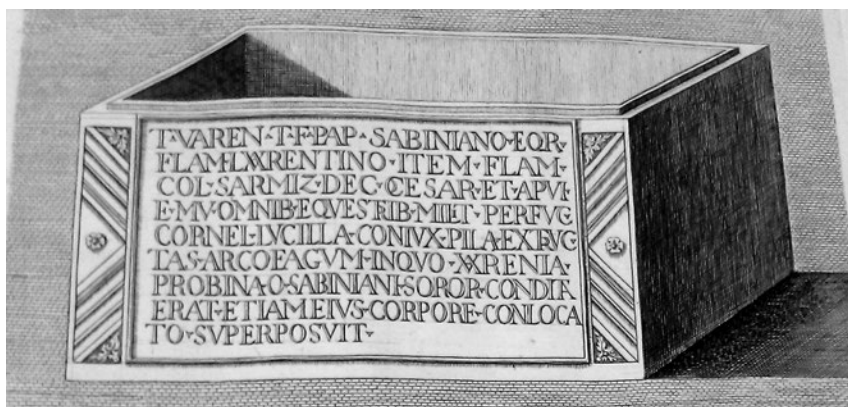 T·VAREN·T·F·PAP·SABINIANO·EQ·R·
FLAM·LAVRENTINO·ITEM·FLAM·
COL·SARMIZ·DEC·ET·APVL·
E·MV·OMNIB·EQVESTRIB·MILIT·PERFVG
CORNEL·LVCILLA·CONIVX·PILA·EXTRVC
TA·SARCOFAGVM·IN·QVO·VARENIA·
PROBINA·SABINIANI·SOROR·CONDITA
ERAT·ETIAM·EIVS·CORPORE·CONLOCA
TO·SVPERPOSVIT·